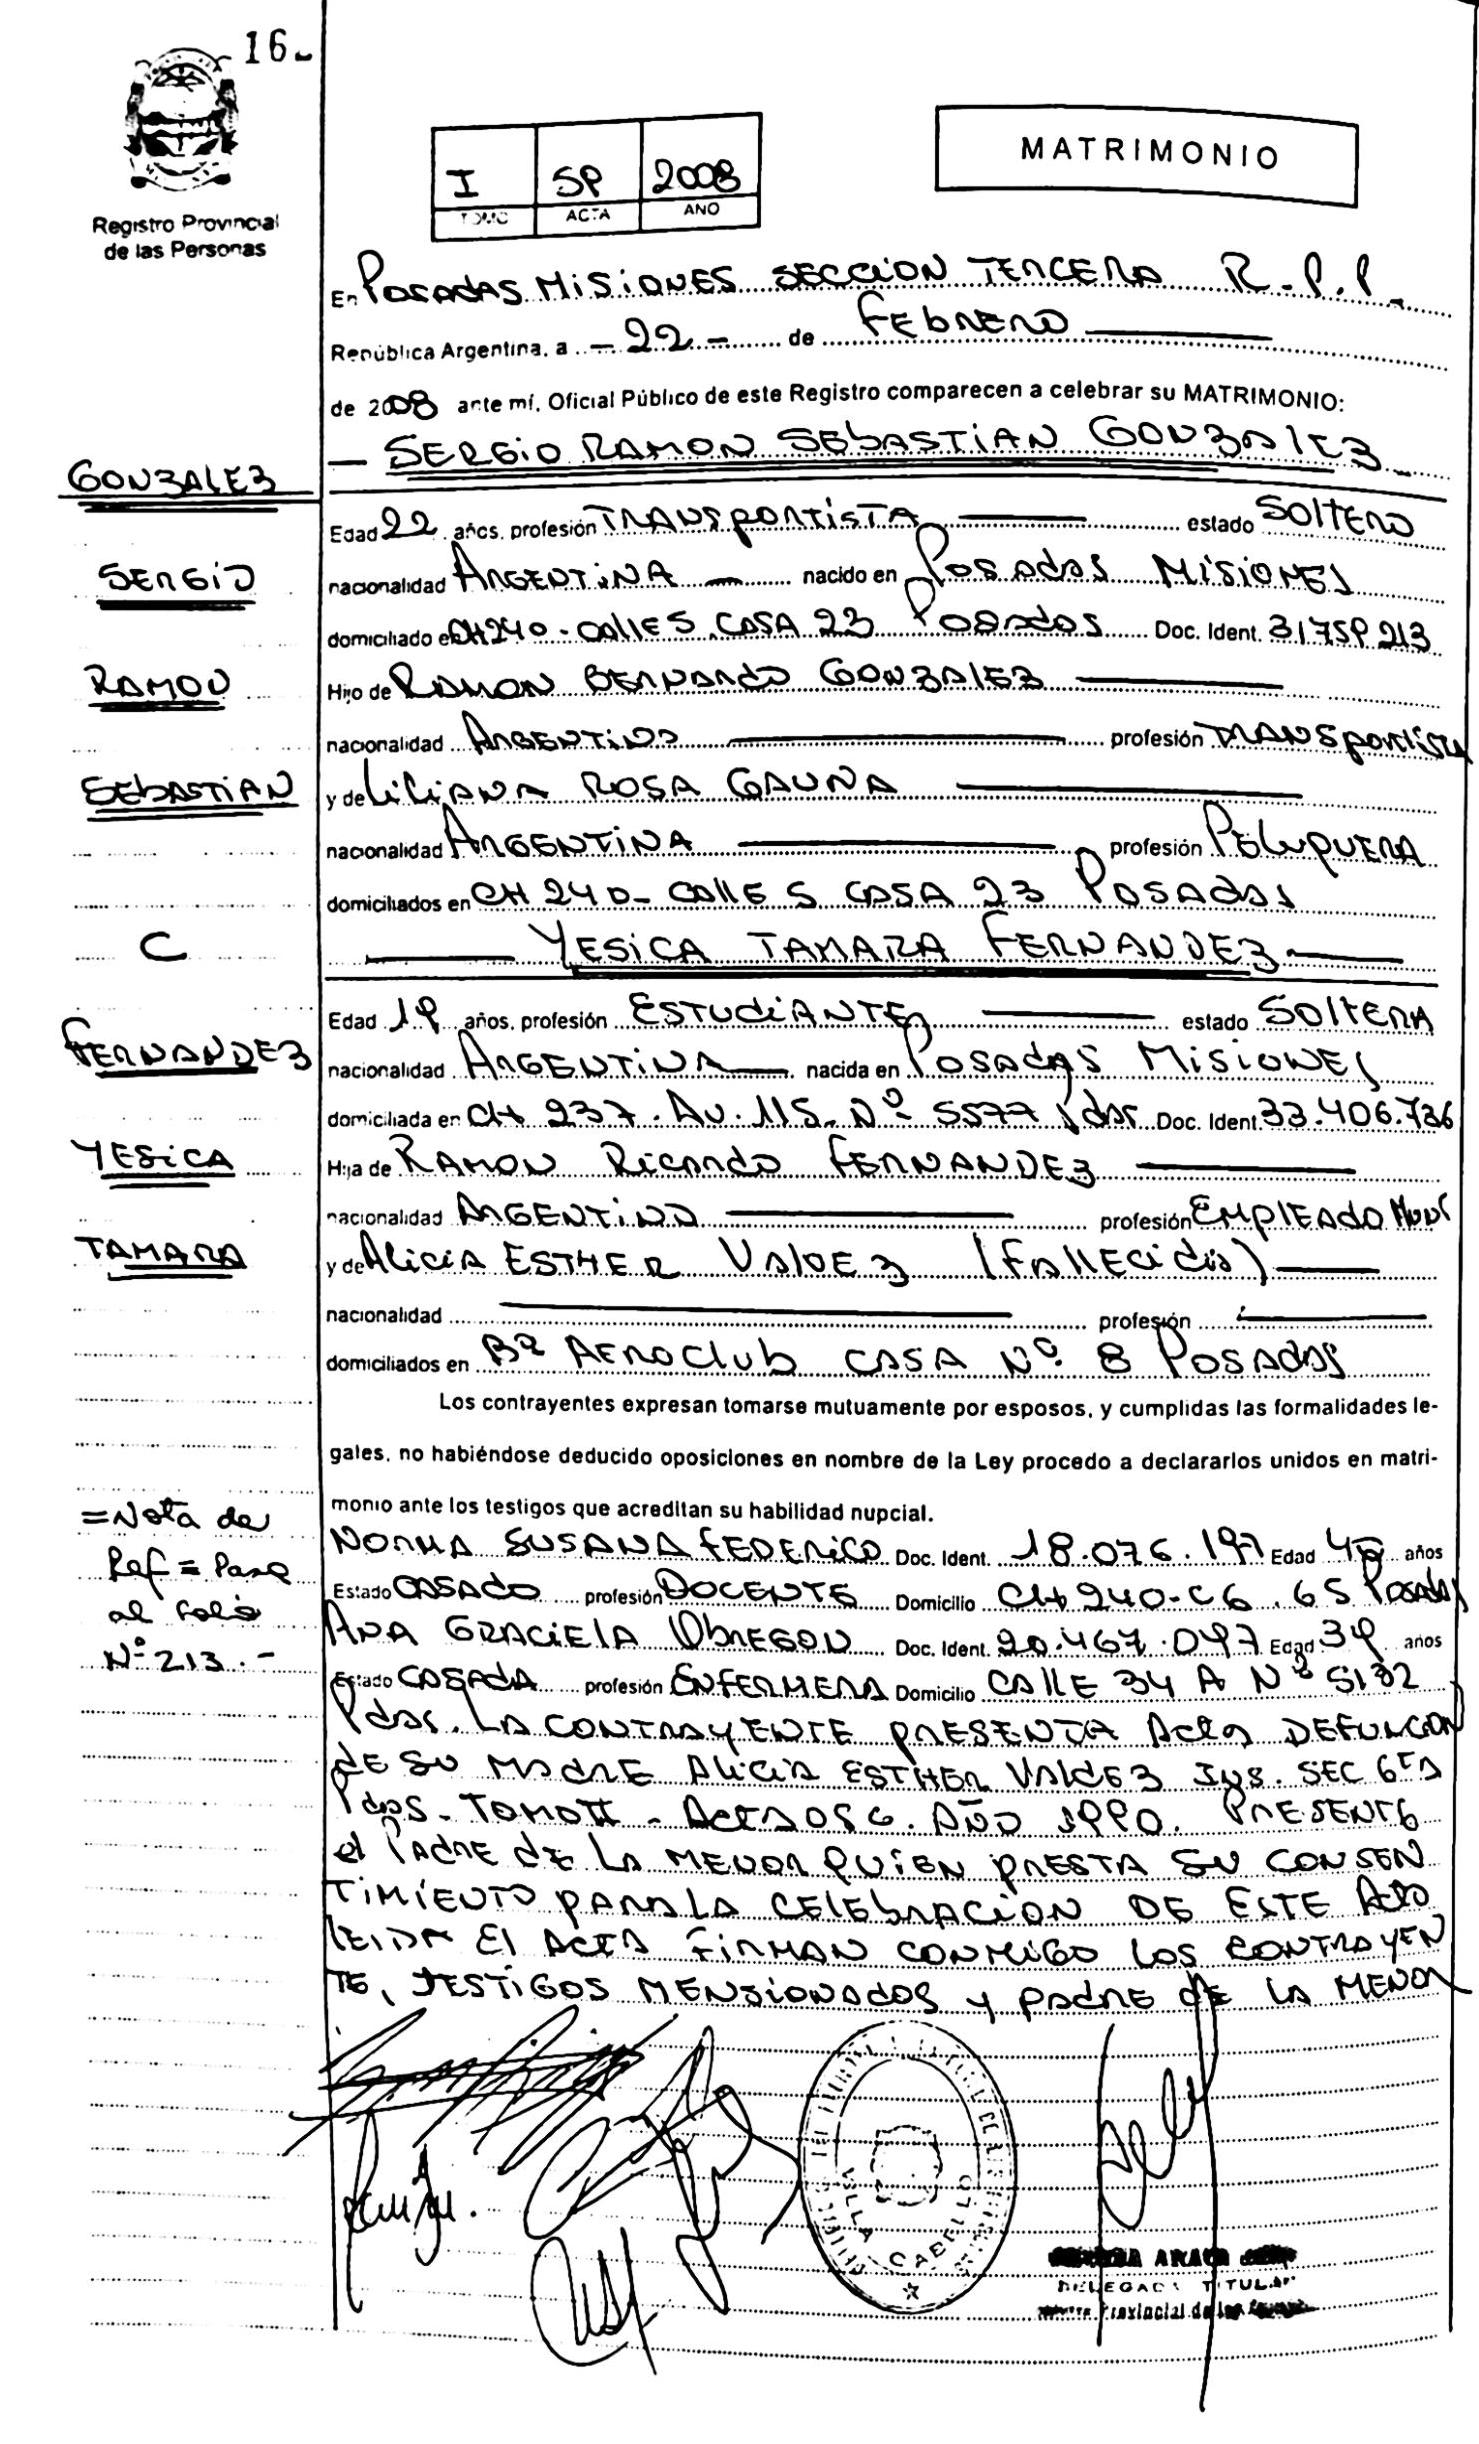 16-
Registro Provincial
de las Personas
I 59 2008
TOMO ACTA AÑO
MATRIMONIO
En POSADAS MISIONES SECCION TERCERA R.P.P.
República Argentina, a - 22 - de FEBRERO
de 2008 ante mí, Oficial Público de este Registro comparecen a celebrar su MATRIMONIO:
— SERGIO RAMON SEBASTIAN GONZALEZ -
GONZALEZ
Edad 22 años, profesión TRANSPORTISTA estado SOLTERO
SERGIO
nacionalidad ARGENTINA nacido en POSADAS MISIONES
domiciliado en CH 240 - CALLE 5 CASA 23 POSADAS Doc. Ident. 31.759.213
RAMON
Hijo de RAMON BERNARDO GONZALEZ
nacionalidad ARGENTINO profesión TRANSPORTISTA
SEBASTIAN
y de LILIANA ROSA GAUNA
nacionalidad ARGENTINA profesión PELUQUERA
domiciliados en CH 240 - CALLE 5 CASA 23 POSADAS
C
YESICA TAMARA FERNANDEZ
Edad 19 años, profesión ESTUDIANTE estado SOLTERA
FERNANDEZ
nacionalidad ARGENTINA nacida en POSADAS MISIONES
domiciliada en CH 237. AV. 115. Nº 5577 Pdas Doc. Ident. 33.406.736
YESICA
Hija de RAMON RICARDO FERNANDEZ
nacionalidad ARGENTINO profesión EMPLEADO
TAMARA
y de ALICIA ESTHER VALDEZ (FALLECIDA)
nacionalidad profesión
domiciliados en Bº AEROCLUB CASA Nº 8 POSADAS
Los contrayentes expresan tomarse mutuamente por esposos, y cumplidas las formalidades le-
gales, no habiéndose deducido oposiciones en nombre de la Ley procedo a declararlos unidos en matri-
monio ante los testigos que acreditan su habilidad nupcial.
=Nota de
Ref = Pase
al folio
Nº 213.-
NORMA SUSANA FEDERICO Doc. Ident. 18.076.197 Edad años
Estado CASADO profesión DOCENTE Domicilio CH 240-C6. 65 Posadas
ANA GRACIELA OBREGON Doc. Ident. 20.467.047 Edad 39 años
Estado CASADA profesión ENFERMERA Domicilio CALLE 34 A Nº 5132
Pdas. LA CONTRAYENTE PRESENTA ACTA DEFUNCION
DE SU MADRE ALICIA ESTHER VALDEZ INS. SEC 6TA
Pdas - TOMO II - ACTA 056. AÑO 1990. PRESENTE
el PADRE de LA MENOR QUIEN PRESTA SU CONSEN
TIMIENTO PARA LA CELEBRACION DE ESTE ACTO
LEIDA EL ACTA FIRMAN CONMIGO LOS CONTRAYEN
TE, TESTIGOS MENSIONADOS y PADRE DE LA MENOR
VILLA CABELLO
DELEGADA TITULAR
Provincial de las